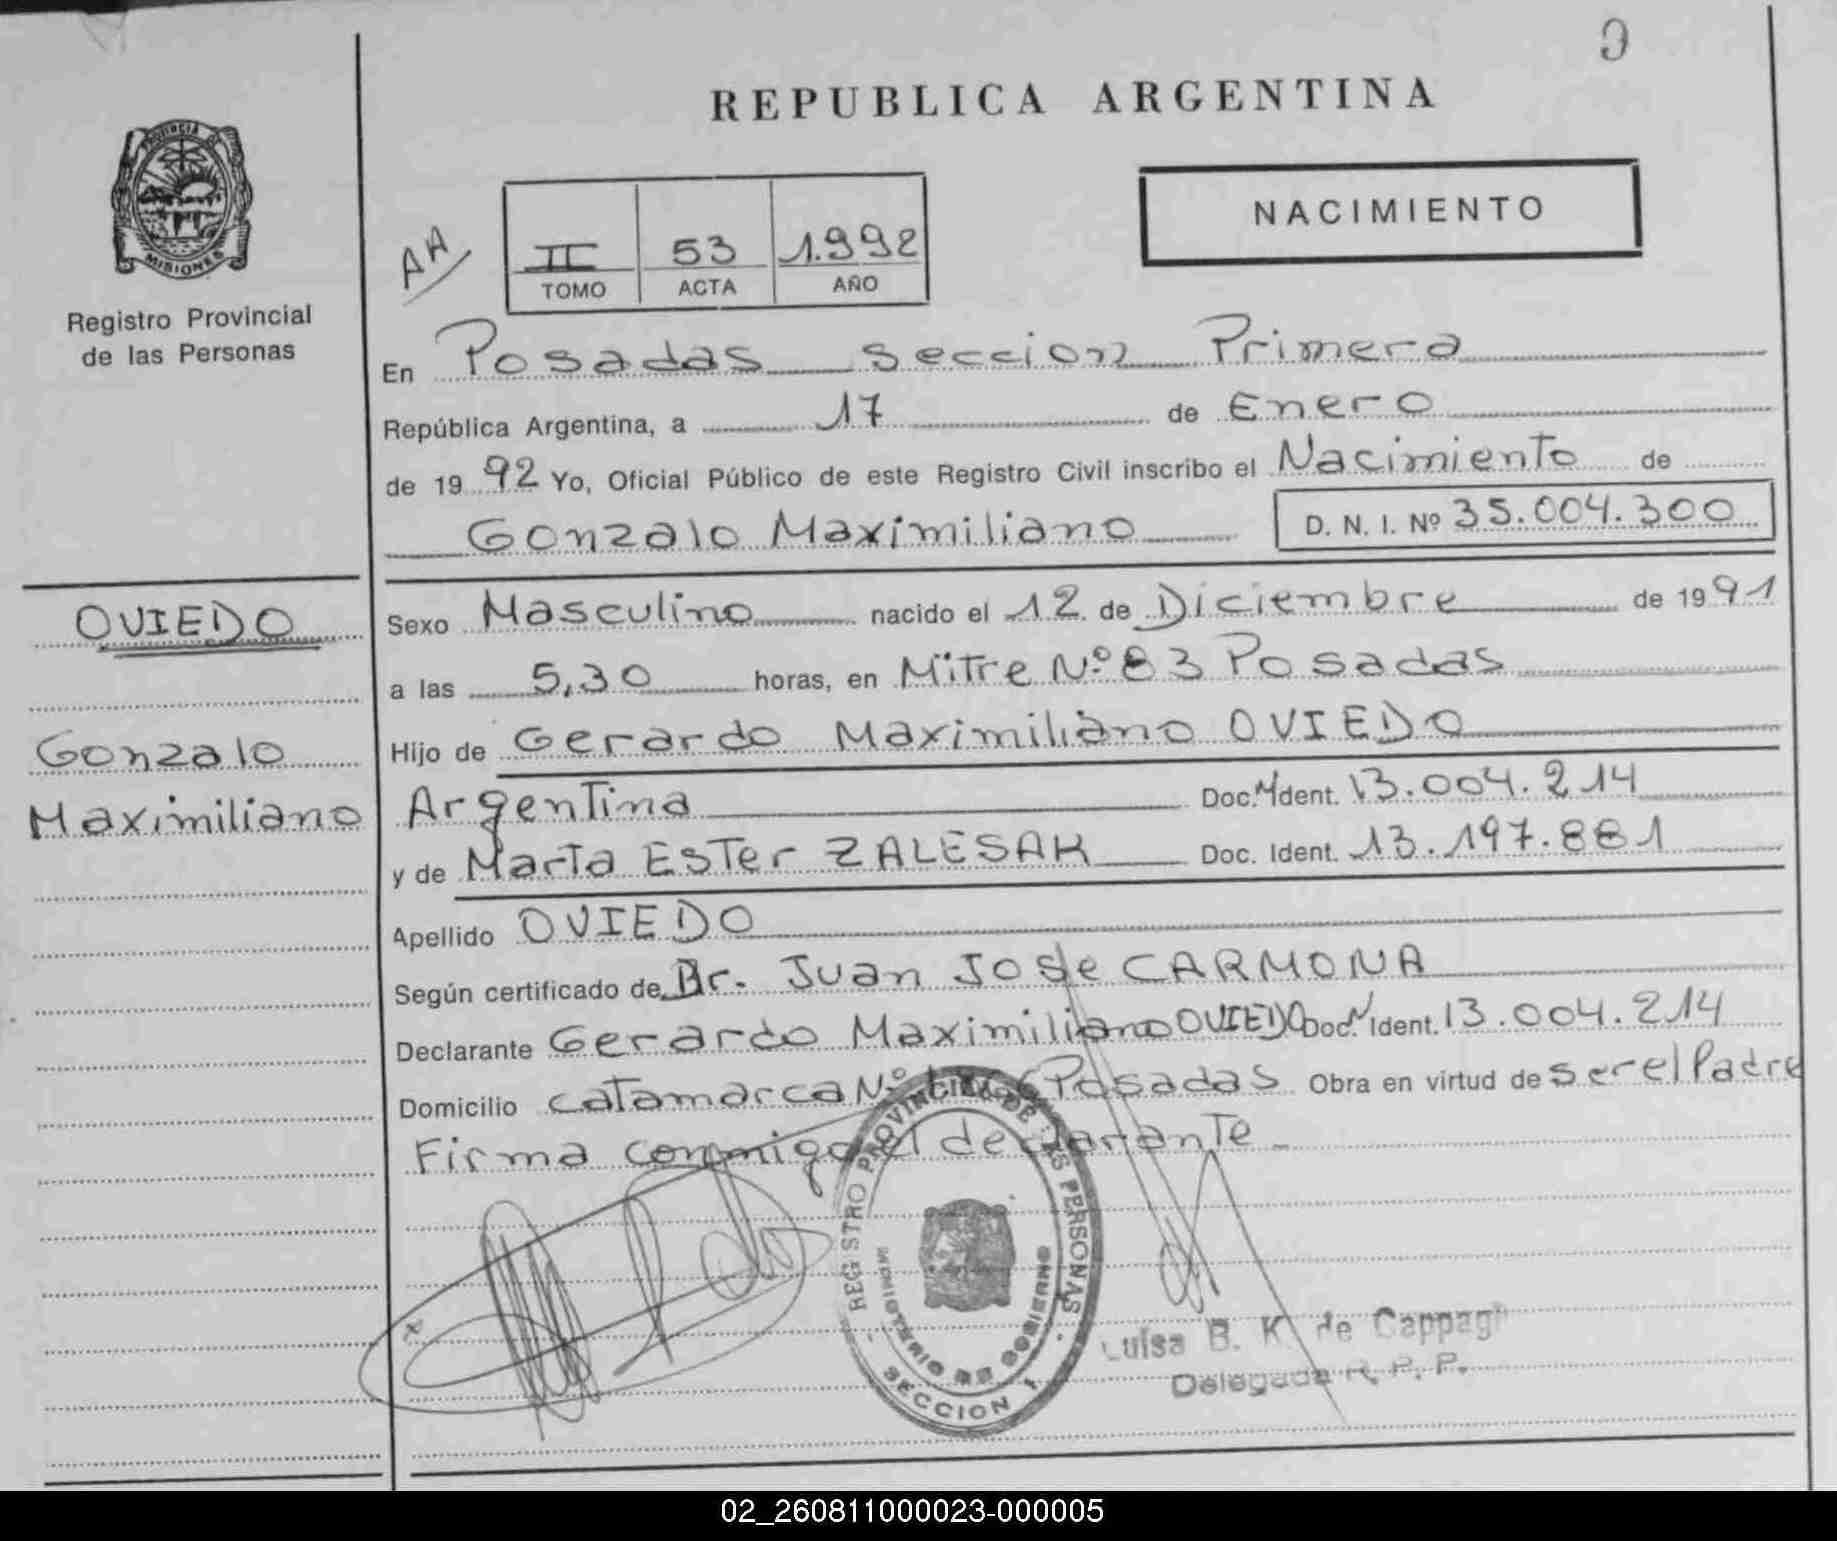 REPUBLICA ARGENTINA
PROVINCIA DE
MISIONES
Registro Provincial
de las Personas
AA
II 53 1.992
TOMO ACTA AÑO
NACIMIENTO
En Posadas seccion Primera
República Argentina, a 17 de Enero
de 1992 Yo, Oficial Público de este Registro Civil inscribo el Nacimiento de
Gonzalo Maximiliano D. N. I. Nº 35.004.300
OVIEDO
Gonzalo
Maximiliano
Sexo Masculino nacido el 12 de Diciembre de 1991
a las 5,30 horas, en Mitre Nº 83 Posadas
Hijo de Gerardo Maximiliano OVIEDO
Argentina Doc. Ident. 13.004.214
y de Marta Ester ZALESAK Doc. Ident. 13.197.881
Apellido OVIEDO
Según certificado de Dr. Juan Jose CARMONA
Declarante Gerardo Maximiliano OVIEDO Doc. Ident. 13.004.214
Domicilio catamarca Nº Posadas Obra en virtud de ser el Padre
Firma conmigo el declarante
REGISTRO PROVINCIAL DE LAS PERSONAS
MINISTERIO DE GOBIERNO
SECCION 1
Luisa B. K. de
Delegada R. P. P.
02_260811000023-000005